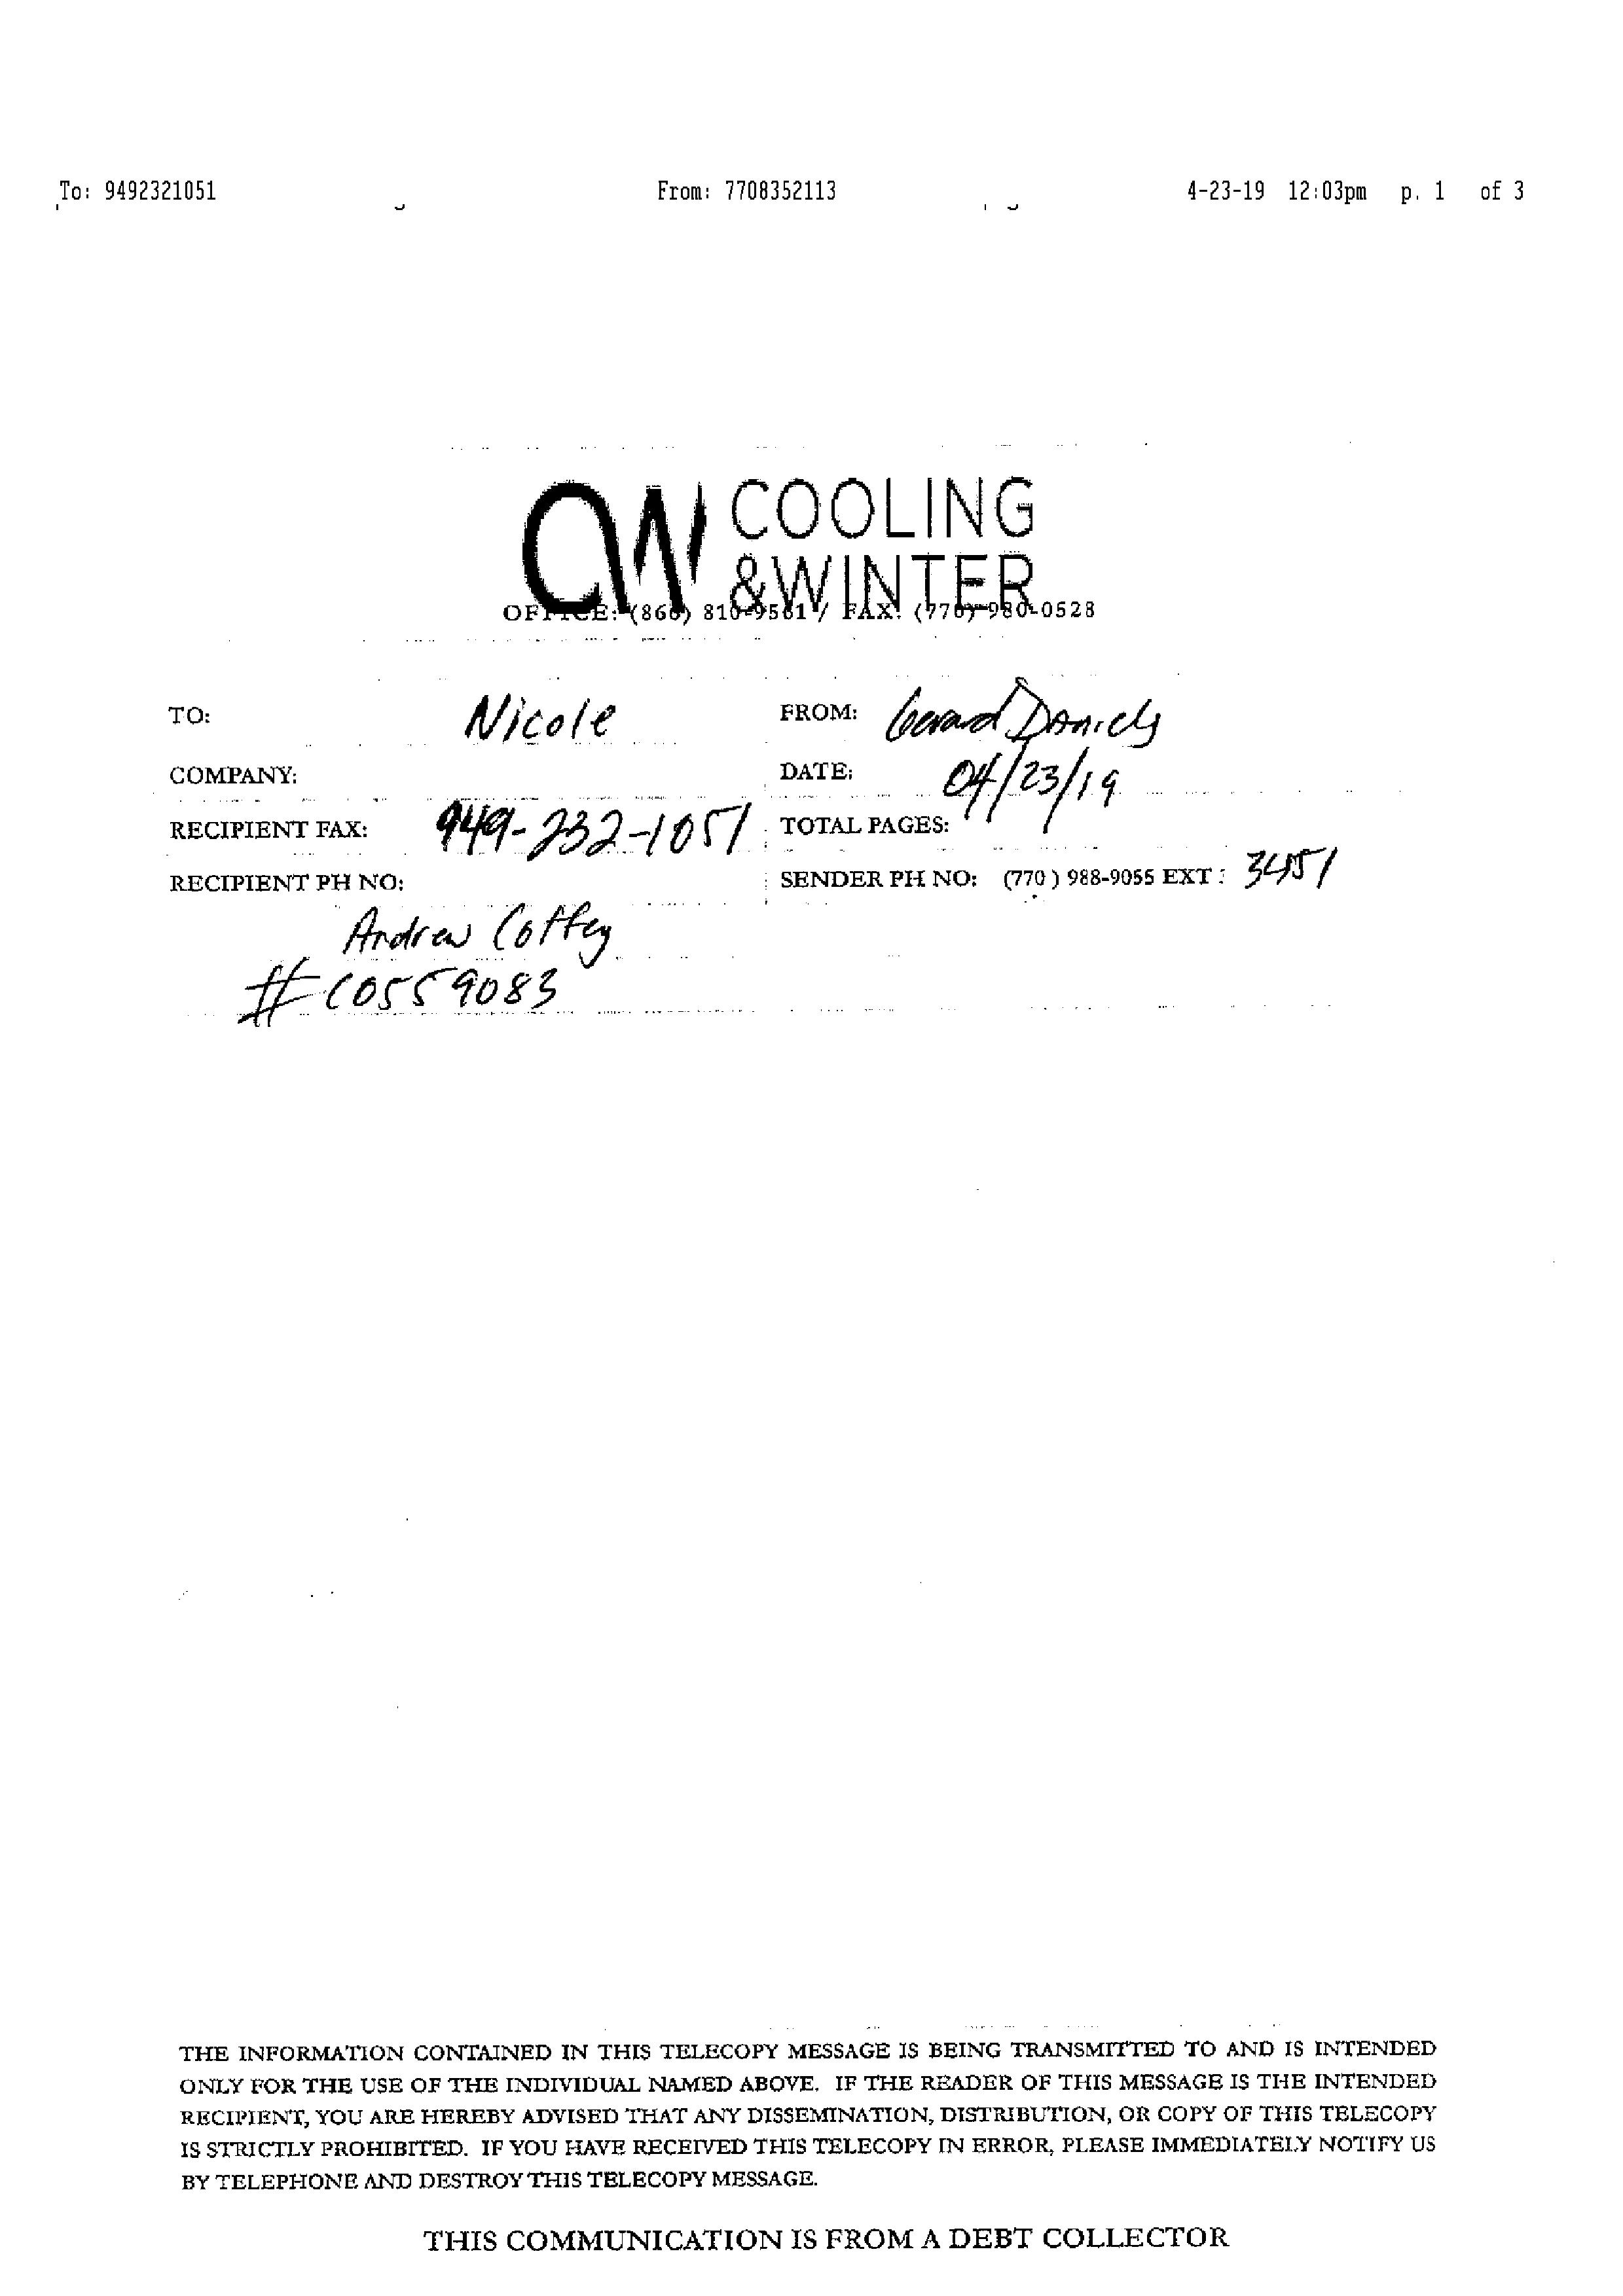 To: 9492321051 From: 7708352113 4-23-19 12:03pm p. 1 of 3
CW COOLING
&WINTER
OFFICE: (866) 810-9561 / FAX: (770) 980-0528
TO: Nicole FROM: Gerard Daniels
COMPANY: DATE: 04/23/19
RECIPIENT FAX: 949-232-1051 TOTAL PAGES:
RECIPIENT PH NO: SENDER PH NO: (770 ) 988-9055 EXT : 3451
Andrew Coffey
# C0559083
THE INFORMATION CONTAINED IN THIS TELECOPY MESSAGE IS BEING TRANSMITTED TO AND IS INTENDED
ONLY FOR THE USE OF THE INDIVIDUAL NAMED ABOVE. IF THE READER OF THIS MESSAGE IS THE INTENDED
RECIPIENT, YOU ARE HEREBY ADVISED THAT ANY DISSEMINATION, DISTRIBUTION, OR COPY OF THIS TELECOPY
IS STRICTLY PROHIBITED. IF YOU HAVE RECEIVED THIS TELECOPY IN ERROR, PLEASE IMMEDIATELY NOTIFY US
BY TELEPHONE AND DESTROY THIS TELECOPY MESSAGE.
THIS COMMUNICATION IS FROM A DEBT COLLECTOR